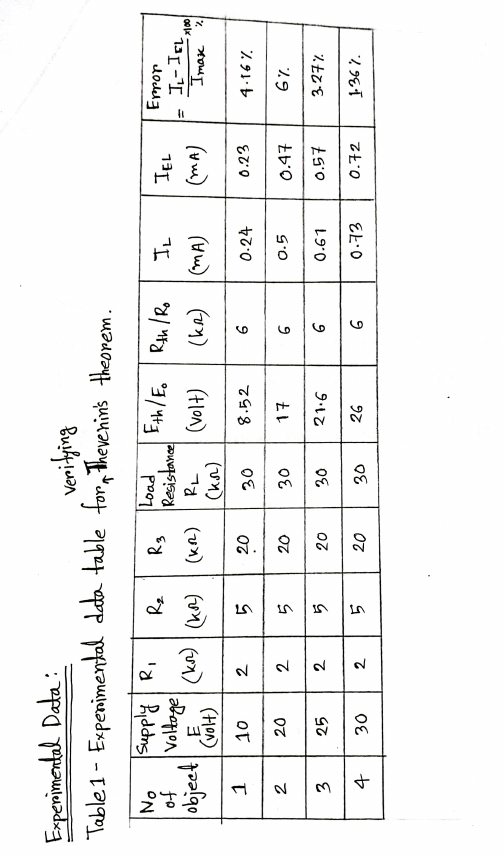 Experimental Data:
verifying
Table 1 - Experimental data table for Thevenin's theorem.
No of object | Supply Voltage E (volt) | R1 (kΩ) | R2 (kΩ) | R3 (kΩ) | Load Resistance RL (kΩ) | Eth/Eo (volt) | Rth/Ro (kΩ) | IL (mA) | IEL (mA) | Error = IL - IEL / Imax ×100 %
1 | 10 | 2 | 5 | 20 | 30 | 8.52 | 6 | 0.24 | 0.23 | 4.16%
2 | 20 | 2 | 5 | 20 | 30 | 17 | 6 | 0.5 | 0.47 | 6%
3 | 25 | 2 | 5 | 20 | 30 | 21.6 | 6 | 0.61 | 0.57 | 3.27%
4 | 30 | 2 | 5 | 20 | 30 | 26 | 6 | 0.73 | 0.72 | 1.36%